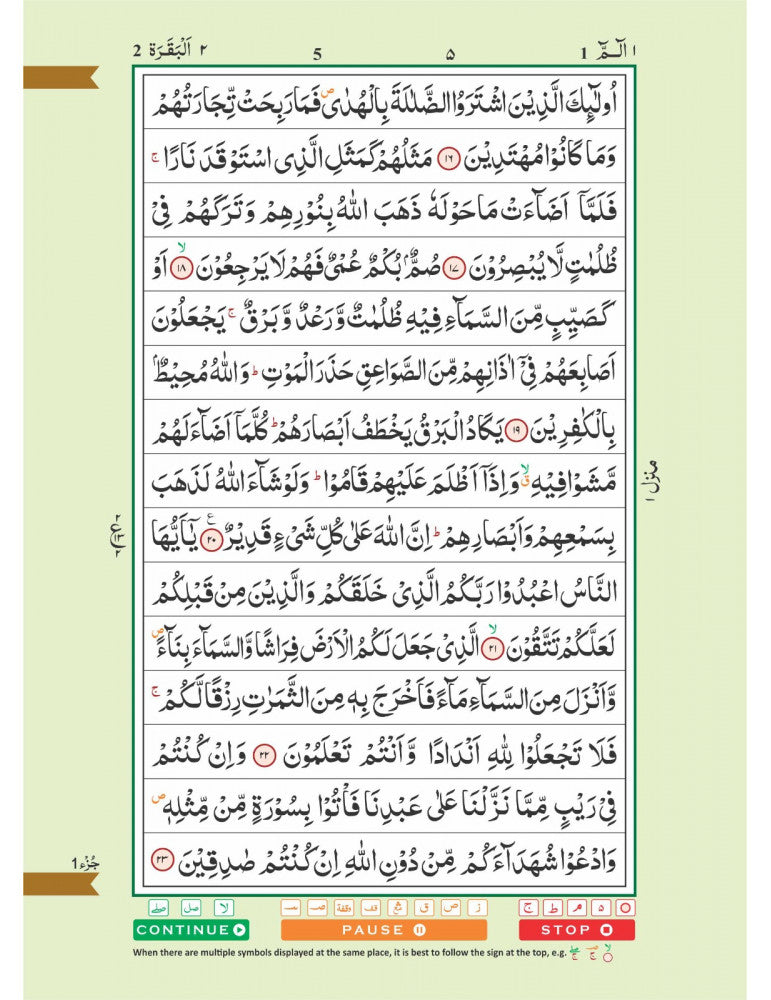 ٢ اَلْبَقَرَة 2 5 ٥ ا الٓمّٓ 1
اُولٰٓئِكَ الَّذِيْنَ اشْتَرَوُا الضَّلٰلَةَ بِالْهُدٰى ۪ فَمَا رَبِحَتْ تِّجَارَتُهُمْ
وَمَا كَانُوْا مُهْتَدِيْنَ ١٦ مَثَلُهُمْ كَمَثَلِ الَّذِى اسْتَوْقَدَ نَارًا ۚ
فَلَمَّآ اَضَآءَتْ مَا حَوْلَهٗ ذَهَبَ اللّٰهُ بِنُوْرِهِمْ وَتَرَكَهُمْ فِىْ
ظُلُمٰتٍ لَّا يُبْصِرُوْنَ ١٧ صُمٌّۢ بُكْمٌ عُمْىٌ فَهُمْ لَا يَرْجِعُوْنَ ۙ ١٨ اَوْ
كَصَيِّبٍ مِّنَ السَّمَآءِ فِيْهِ ظُلُمٰتٌ وَّرَعْدٌ وَّبَرْقٌ ۚ يَجْعَلُوْنَ
اَصَابِعَهُمْ فِىْٓ اٰذَانِهِمْ مِّنَ الصَّوَاعِقِ حَذَرَ الْمَوْتِ ؕ وَاللّٰهُ مُحِيْطٌۢ
بِالْكٰفِرِيْنَ ١٩ يَكَادُ الْبَرْقُ يَخْطَفُ اَبْصَارَهُمْ ؕ كُلَّمَآ اَضَآءَ لَهُمْ
مَّشَوْا فِيْهِ ۙ ق وَاِذَآ اَظْلَمَ عَلَيْهِمْ قَامُوْا ؕ وَلَوْ شَآءَ اللّٰهُ لَذَهَبَ
بِسَمْعِهِمْ وَاَبْصَارِهِمْ ؕ اِنَّ اللّٰهَ عَلٰى كُلِّ شَىْءٍ قَدِيْرٌ ع ٢٠ يٰٓاَيُّهَا
النَّاسُ اعْبُدُوْا رَبَّكُمُ الَّذِىْ خَلَقَكُمْ وَالَّذِيْنَ مِنْ قَبْلِكُمْ
لَعَلَّكُمْ تَتَّقُوْنَ ۙ ٢١ الَّذِىْ جَعَلَ لَكُمُ الْاَرْضَ فِرَاشًا وَّالسَّمَآءَ بِنَآءً ۪
وَّاَنْزَلَ مِنَ السَّمَآءِ مَآءً فَاَخْرَجَ بِهٖ مِنَ الثَّمَرٰتِ رِزْقًا لَّكُمْ ۚ
فَلَا تَجْعَلُوْا لِلّٰهِ اَنْدَادًا وَّاَنْتُمْ تَعْلَمُوْنَ ٢٢ وَاِنْ كُنْتُمْ
فِىْ رَيْبٍ مِّمَّا نَزَّلْنَا عَلٰى عَبْدِنَا فَاْتُوْا بِسُوْرَةٍ مِّنْ مِّثْلِهٖ ۪
وَادْعُوْا شُهَدَآءَكُمْ مِّنْ دُوْنِ اللّٰهِ اِنْ كُنْتُمْ صٰدِقِيْنَ ٢٣
منزل ١
جُزْء 1
CONTINUE PAUSE STOP
When there are multiple symbols displayed at the same place, it is best to follow the sign at the top, e.g.